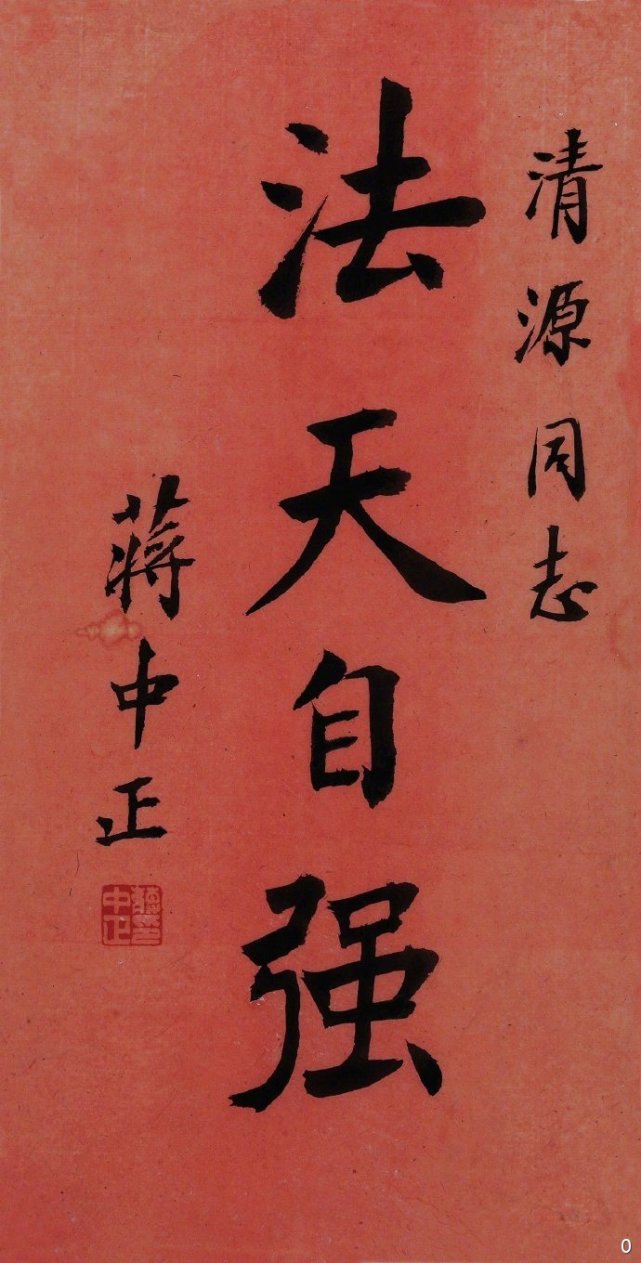 清源同志
法天自强
蒋中正
0